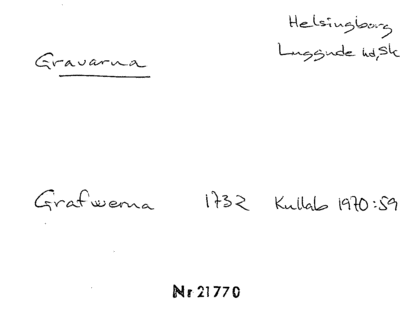 Helsingborg
Gravarna
Luggude hd, Sk
Grafwerna 1732 Kullab 1970:59
Nr 21770